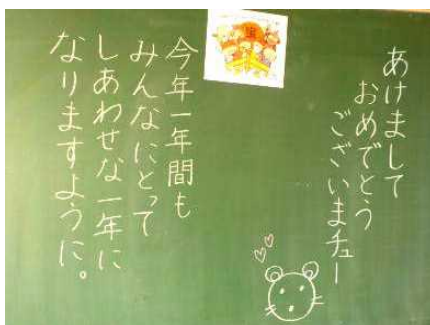 あけまして
おめでとう
ございまチュー
今年一年間も
みんなにとって
しあわせな一年に
なりますように。